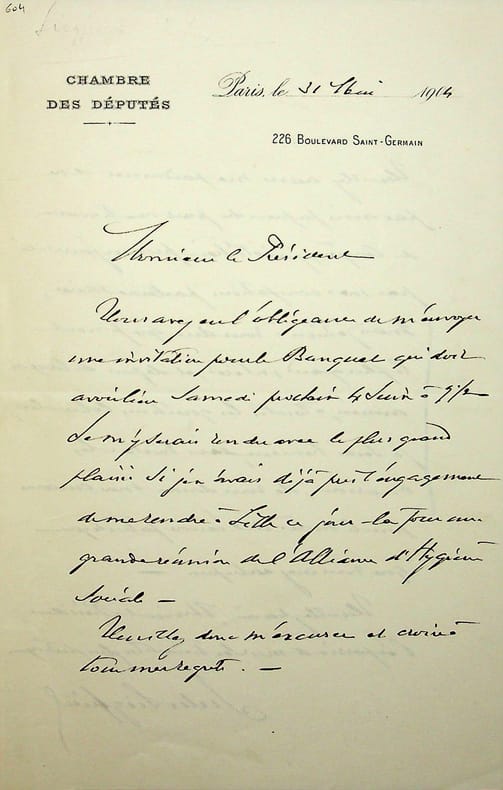 604
CHAMBRE
DES DÉPUTÉS
Paris, le 31 Mai 1904
226 BOULEVARD SAINT-GERMAIN
Monsieur le Président
Vous avez eu l'obligeance de m'envoyer
une invitation pour le Banquet qui doit
avoir lieu Samedi prochain 4 Juin à 7 1/2
Je m'y serais rendu avec le plus grand
plaisir si je n'avais déjà pris l'engagement
de me rendre à Lille ce jour-là pour une
grande réunion de l'Alliance d'Hygiène
Sociale —
Veuillez donc m'excuser et croire à
tous mes regrets. —